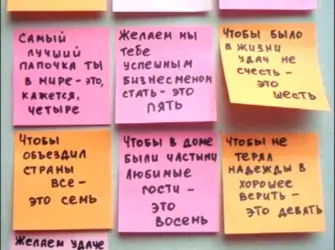 Самый
лучший
папочка ты
в мире - это,
кажется,
четыре
Желаем мы
тебе
успешным
бизнесменом
стать - это
пять
Чтобы было
в жизни
удач не
счесть -
это
шесть
Чтобы
объездил
страны
все -
это семь
Чтобы в доме
были частыми
любимые
гости -
это
восемь
Чтобы не
терял
надежды в
хорошее
верить -
это девять
Желаем удаче